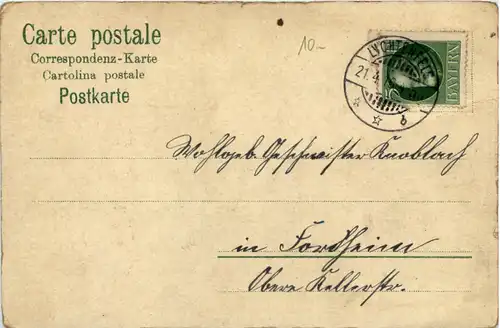 Carte postale
Correspondenz-Karte
Cartolina postale
Postkarte
10-
21.4
b
5
BAYERN
Wohlgeb. Geschwister Knoblach
in Forchheim
Obere Kellerstr.